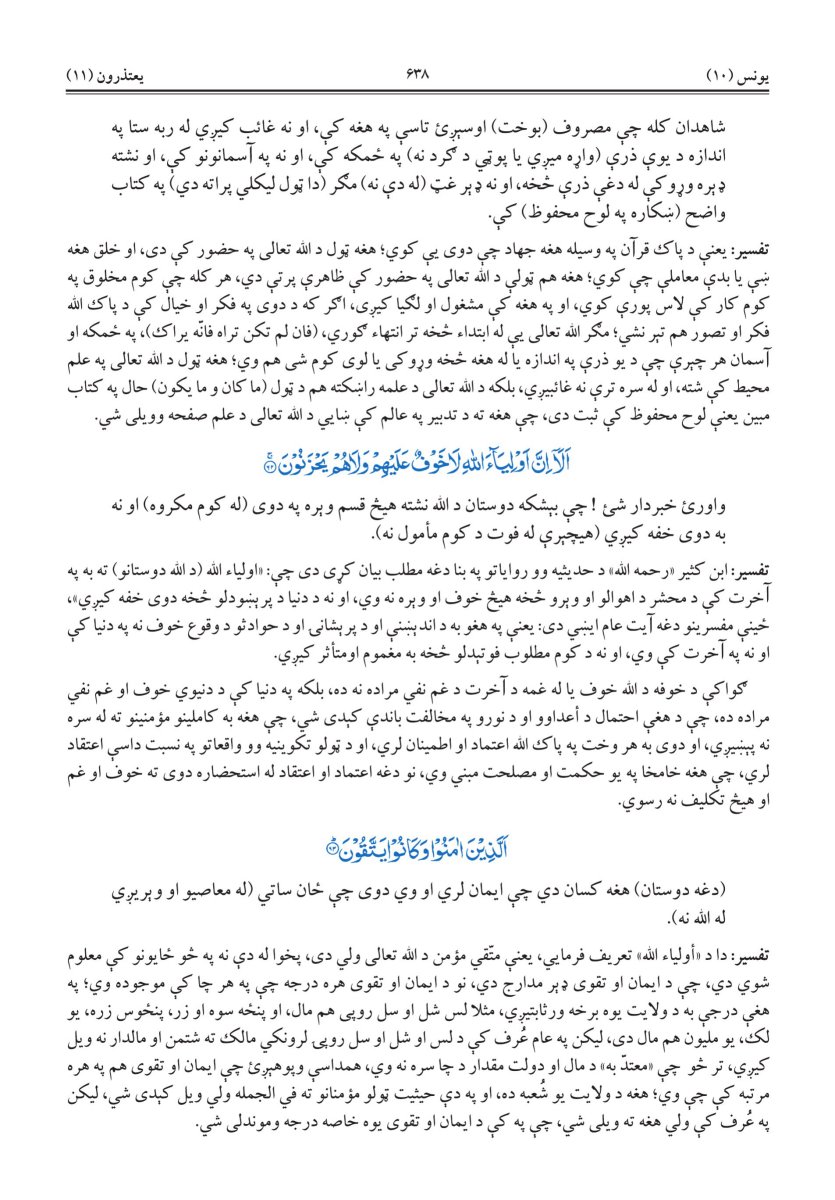 یونس (۱۰)
۶۳۸
یعتذرون (۱۱)
شاهدان کله چې مصروف (بوخت) اوسېږئ تاسې په هغه کې، او نه غائب کیږي له ربه ستا په
اندازه د یوې ذرې (واړه میږي یا پوټي د ګرد نه) په ځمکه کې، او نه په آسمانونو کې، او نشته
ډېره وړوکې له دغې ذرې څخه، او نه ډېر غټ (له دې نه) مګر (دا ټول لیکلي پراته دي) په کتاب
واضح (ښکاره په لوح محفوظ) کې.
تفسیر: یعنې د پاک قرآن په وسیله هغه جهاد چې دوی یې کوي؛ هغه ټول د الله تعالی په حضور کې دی، او خلق هغه
ښې یا بدې معاملې چې کوي؛ هغه هم ټولې د الله تعالی په حضور کې ظاهرې پرتې دي، هر کله چې کوم مخلوق په
کوم کار کې لاس پورې کوي، او په هغه کې مشغول او لګیا کیږی، اګر که د دوی په فکر او خیال کې د پاک الله
فکر او تصور هم تېر نشي؛ مګر الله تعالی یې له ابتداء څخه تر انتهاء ګوري، (فان لم تکن تراه فانّه یراک)، په ځمکه او
آسمان هر چېرې چې د یو ذرې په اندازه یا له هغه څخه وړوکی یا لوی کوم شی هم وي؛ هغه ټول د الله تعالی په علم
محیط کې شته، او له سره ترې نه غائبیږي، بلکه د الله تعالی د علمه راښکته هم د ټول (ما کان و ما یکون) حال په کتاب
مبین یعنې لوح محفوظ کې ثبت دی، چې هغه ته د تدبیر په عالم کې ښایي د الله تعالی د علم صفحه وویلی شي.
اَلَآ اِنَّ اَوْلِيَآءَ اللّٰهِ لَا خَوْفٌ عَلَيْهِمْ وَلَا هُمْ يَحْزَنُوْنَ ۶۲
واورئ خبردار شئ ! چې بېشکه دوستان د الله نشته هیڅ قسم وېره په دوی (له کوم مکروه) او نه
به دوی خفه کیږي (هیچېرې له فوت د کوم مأمول نه).
تفسیر: ابن کثیر «رحمه الله» د حدیثیه وو روایاتو په بنا دغه مطلب بیان کړی دی چې: «اولیاء الله (د الله دوستانو) ته به په
آخرت کې د محشر د اهوالو او وېرو څخه هیڅ خوف او وېره نه وي، او نه د دنیا د پرېښودلو څخه دوی خفه کیږي»،
ځینې مفسرینو دغه آیت عام ایښي دی: یعنې په هغو به د اندېښنې او د پرېشانی او د حوادثو د وقوع خوف نه په دنیا کې
او نه په آخرت کې وي، او نه د کوم مطلوب فوتېدلو څخه به مغموم اومتأثر کیږي.
ګواکې د خوفه د الله خوف یا له غمه د آخرت د غم نفي مراده نه ده، بلکه په دنیا کې د دنیوي خوف او غم نفي
مراده ده، چې د هغې احتمال د أعداوو او د نورو په مخالفت باندې کېدی شي، چې هغه به کاملینو مؤمنینو ته له سره
نه پېښیږي، او دوی به هر وخت په پاک الله اعتماد او اطمینان لري، او د ټولو تکوینیه وو واقعاتو په نسبت داسې اعتقاد
لري، چې هغه خامخا په یو حکمت او مصلحت مبني وي، نو دغه اعتماد او اعتقاد له استحضاره دوی ته خوف او غم
او هیڅ تکلیف نه رسوي.
اَلَّذِيْنَ اٰمَنُوْا وَكَانُوْا يَتَّقُوْنَ ۶۳
(دغه دوستان) هغه کسان دي چې ایمان لري او وي دوی چې ځان ساتي (له معاصیو او وېریږي
له الله نه).
تفسیر: دا د «أولیاء الله» تعریف فرمایي، یعنې متّقي مؤمن د الله تعالی ولي دی، پخوا له دې نه په څو ځایونو کې معلوم
شوي دي، چې د ایمان او تقوی ډېر مدارج دي، نو د ایمان او تقوی هره درجه چې په هر چا کې موجوده وي؛ په
هغې درجې به د ولایت یوه برخه ورثابتیږي، مثلا لس شل او سل روپۍ هم مال، او پنځه سوه او زر، پنځوس زره، یو
لک، یو ملیون هم مال دی، لیکن په عام عُرف کې د لس او شل او سل روپۍ لرونکي مالک ته شتمن او مالدار نه ویل
کیږي، تر څو چې «معتدّ به» د مال او دولت مقدار د چا سره نه وي، همداسې وپوهېږئ چې ایمان او تقوی هم په هره
مرتبه کې چې وي؛ هغه د ولایت یو شُعبه ده، او په دې حیثیت ټولو مؤمنانو ته في الجمله ولي ویل کېدی شي، لیکن
په عُرف کې ولي هغه ته ویلی شي، چې په کې د ایمان او تقوی یوه خاصه درجه وموندلی شي.